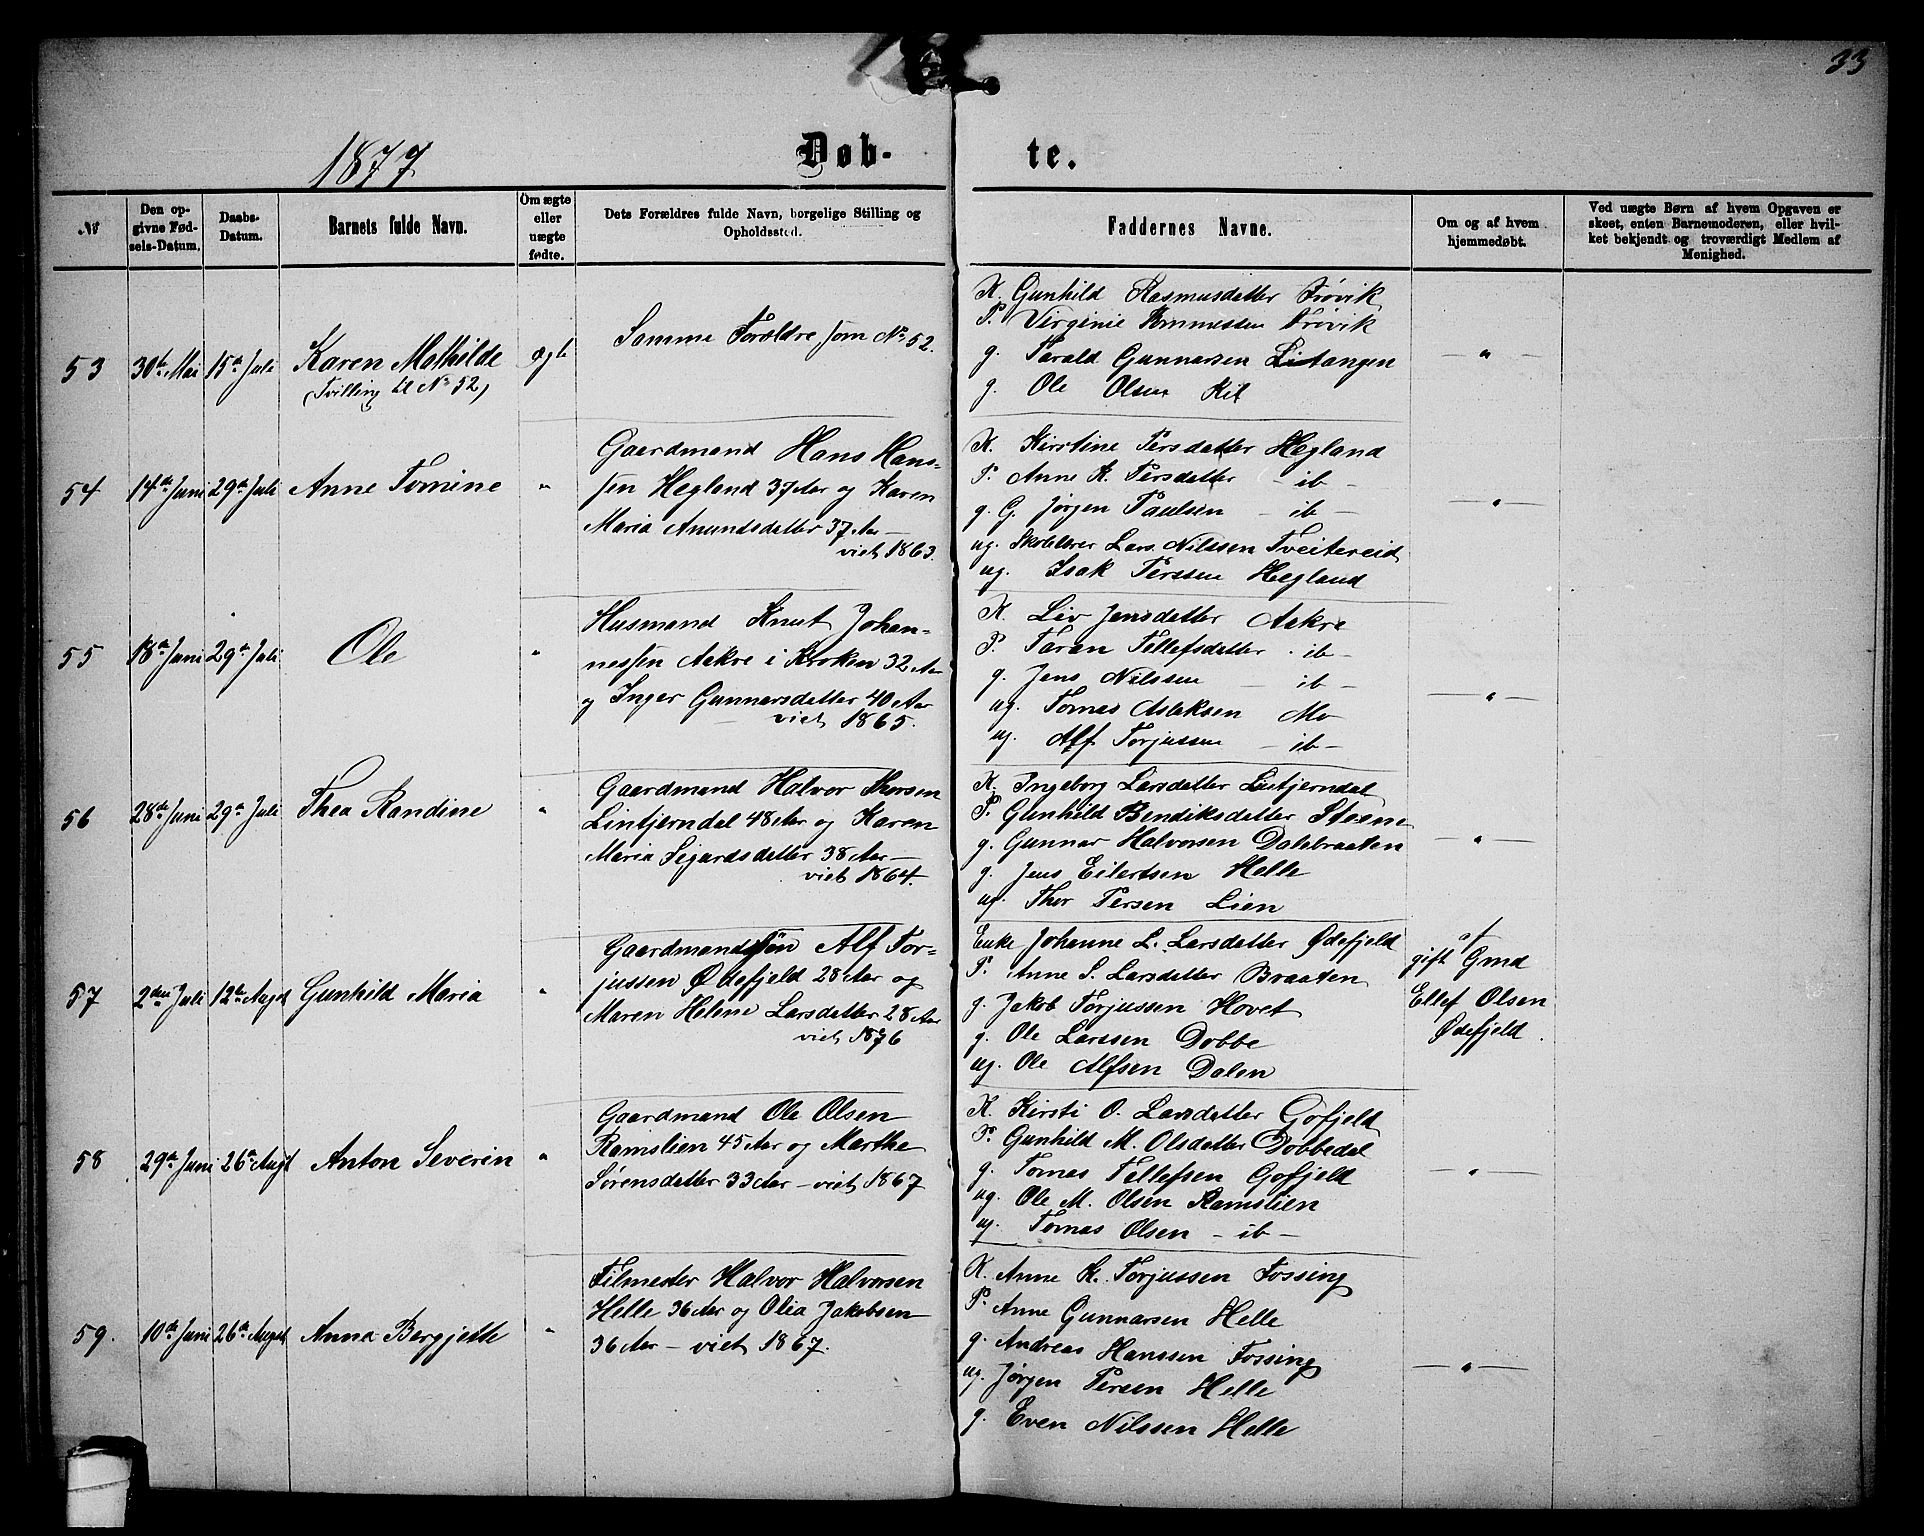 33
1877
Døb-
te.
№
Den op-
givne Fød-
sels-Datum.
Daabs-
Datum.
Barnets fulde Navn.
Om ægte
eller
uægte
fødte.
Dets Forældres fulde Navn, borgelige Stilling og
Opholdssted.
Faddernes Navne.
Om og af hvem
hjemmedøbt.
Ved uægte Børn af hvem Opgaven er
skeet, enten Barnemoderen, eller hvil-
ket bekjendt og troværdigt Medlem af
Menighed.
53
30te Mai
15de Juli
Karen Mathilde
(Tvilling til No 52)
Ægte
Samme Forældre som No 52.
K. Gunhild Rasmusdatter Trøvik
P. Virginie Trøvik
g. Tarald Gunnarsen Listangen
g. Ole Olsen Kil
— " —
54
14de Juni
29de Juli
Anne Tomine
"
Gaardmand Hans Hans-
sen Hegland 37 Aar og Karen
Maria Anundsdatter 37 Aar —
viet 1863.
K. Kirstine Persdatter Hegland
P. Anne K. Persdatter — ib —
g. G. Jørgen Paulsen — ib —
ug. Skolelærer Lars Nilssen Tveitereid
ug. Isak Terssen Hegland
— " —
55
18de Juni
29de Juli
Ole
"
Husmand Knut Johan-
nessen Aakre i Kroken 32 Aar
og Inger Gunnarsdatter 40 Aar
— viet 1865.
K. Liv Jensdatter Aakre
P. Taran Tellefsdatter - ib —
g. Jens Nilssen — ib —
ug. Tomas Aslaksen Mo
ug. Alf Torjussen — ib —
— " —
56
28de Juni
29de Juli
Thea Randine
"
Gaardmand Halvor Thorsen
Lintjerndal 48 Aar og Karen
Maria Sigurdsdatter 38 Aar —
viet 1864.
K. Ingeborg Larsdatter Lintjerndal
P. Gunhild Bendiksdatter Steene
g. Gunnar Halvorsen Dalebraaten
g. Jens Eilertsen Helle
ug. Thor Persen Lien
— " —
57
2den Juli
12te Augst
Gunhild Maria
"
Gaardmandssøn Alf Tor-
jussen Ødefjeld 28 Aar og
Maren Helene Larsdatter 28 Aar
viet 1876
Enke Johanne L. Larsdatter Ødefjeld
P. Anne S. Larsdatter Braaten
g. Jakob Torjussen Hovet
g. Ole Larssen Dobbe
ug. Ole Alfsen Dalen
af
gift Gmd
Ellef Olsen
Ødefjeld.
58
29de Juni
26de Augst
Anton Severin
"
Gaardmand Ole Olsen
Ramslien 45 Aar og Marthe
Sørensdatter 33 Aar — viet 1867
K. Kirsti O. Larsdatter Gofjeld
P. Gunhild M. Olsdatter Dobbedal
g. Tomas Tellefsen Gofjeld
ug. Ole M. Olsen Ramslien
ug. Tomas Olsen — ib —
— " —
59.
10de Juni
26de Augst
Anna Bergjette
"
Filmester Halvor Halvorsen
Helle 36 Aar og Olia Jakobsen
36 Aar — viet 1867.
K. Anne K. Torjussen Fossing
P. Anne Gunnarsen Helle
g. Andreas Hanssen Fossing
ug. Jørgen Persen Helle
g. Even Nilssen Helle
— " —